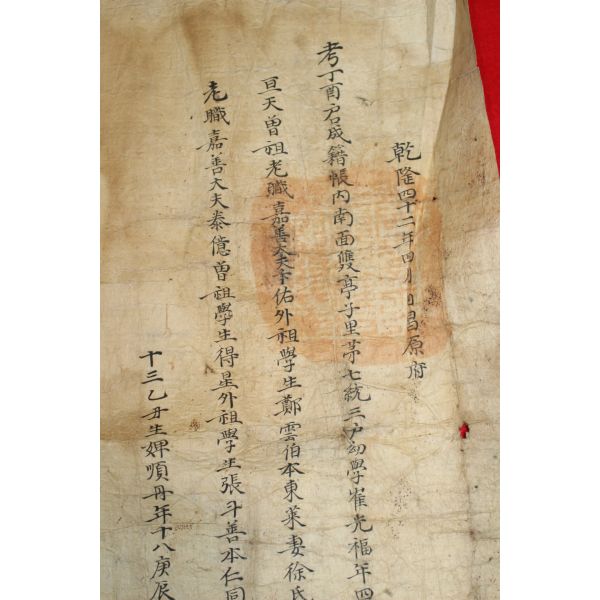 乾隆四十二年四月日昌原府
考丁酉户成籍帳內南面雙亭子里第七統三户幼學崔光福年四
亘天曾祖老職嘉善大夫卞佑外祖學生鄭雲伯本東萊妻徐氏
老職嘉善大夫泰億曾祖學生得星外祖學生張斗善本仁同
十三乙丑生婢順丹年十八庚辰